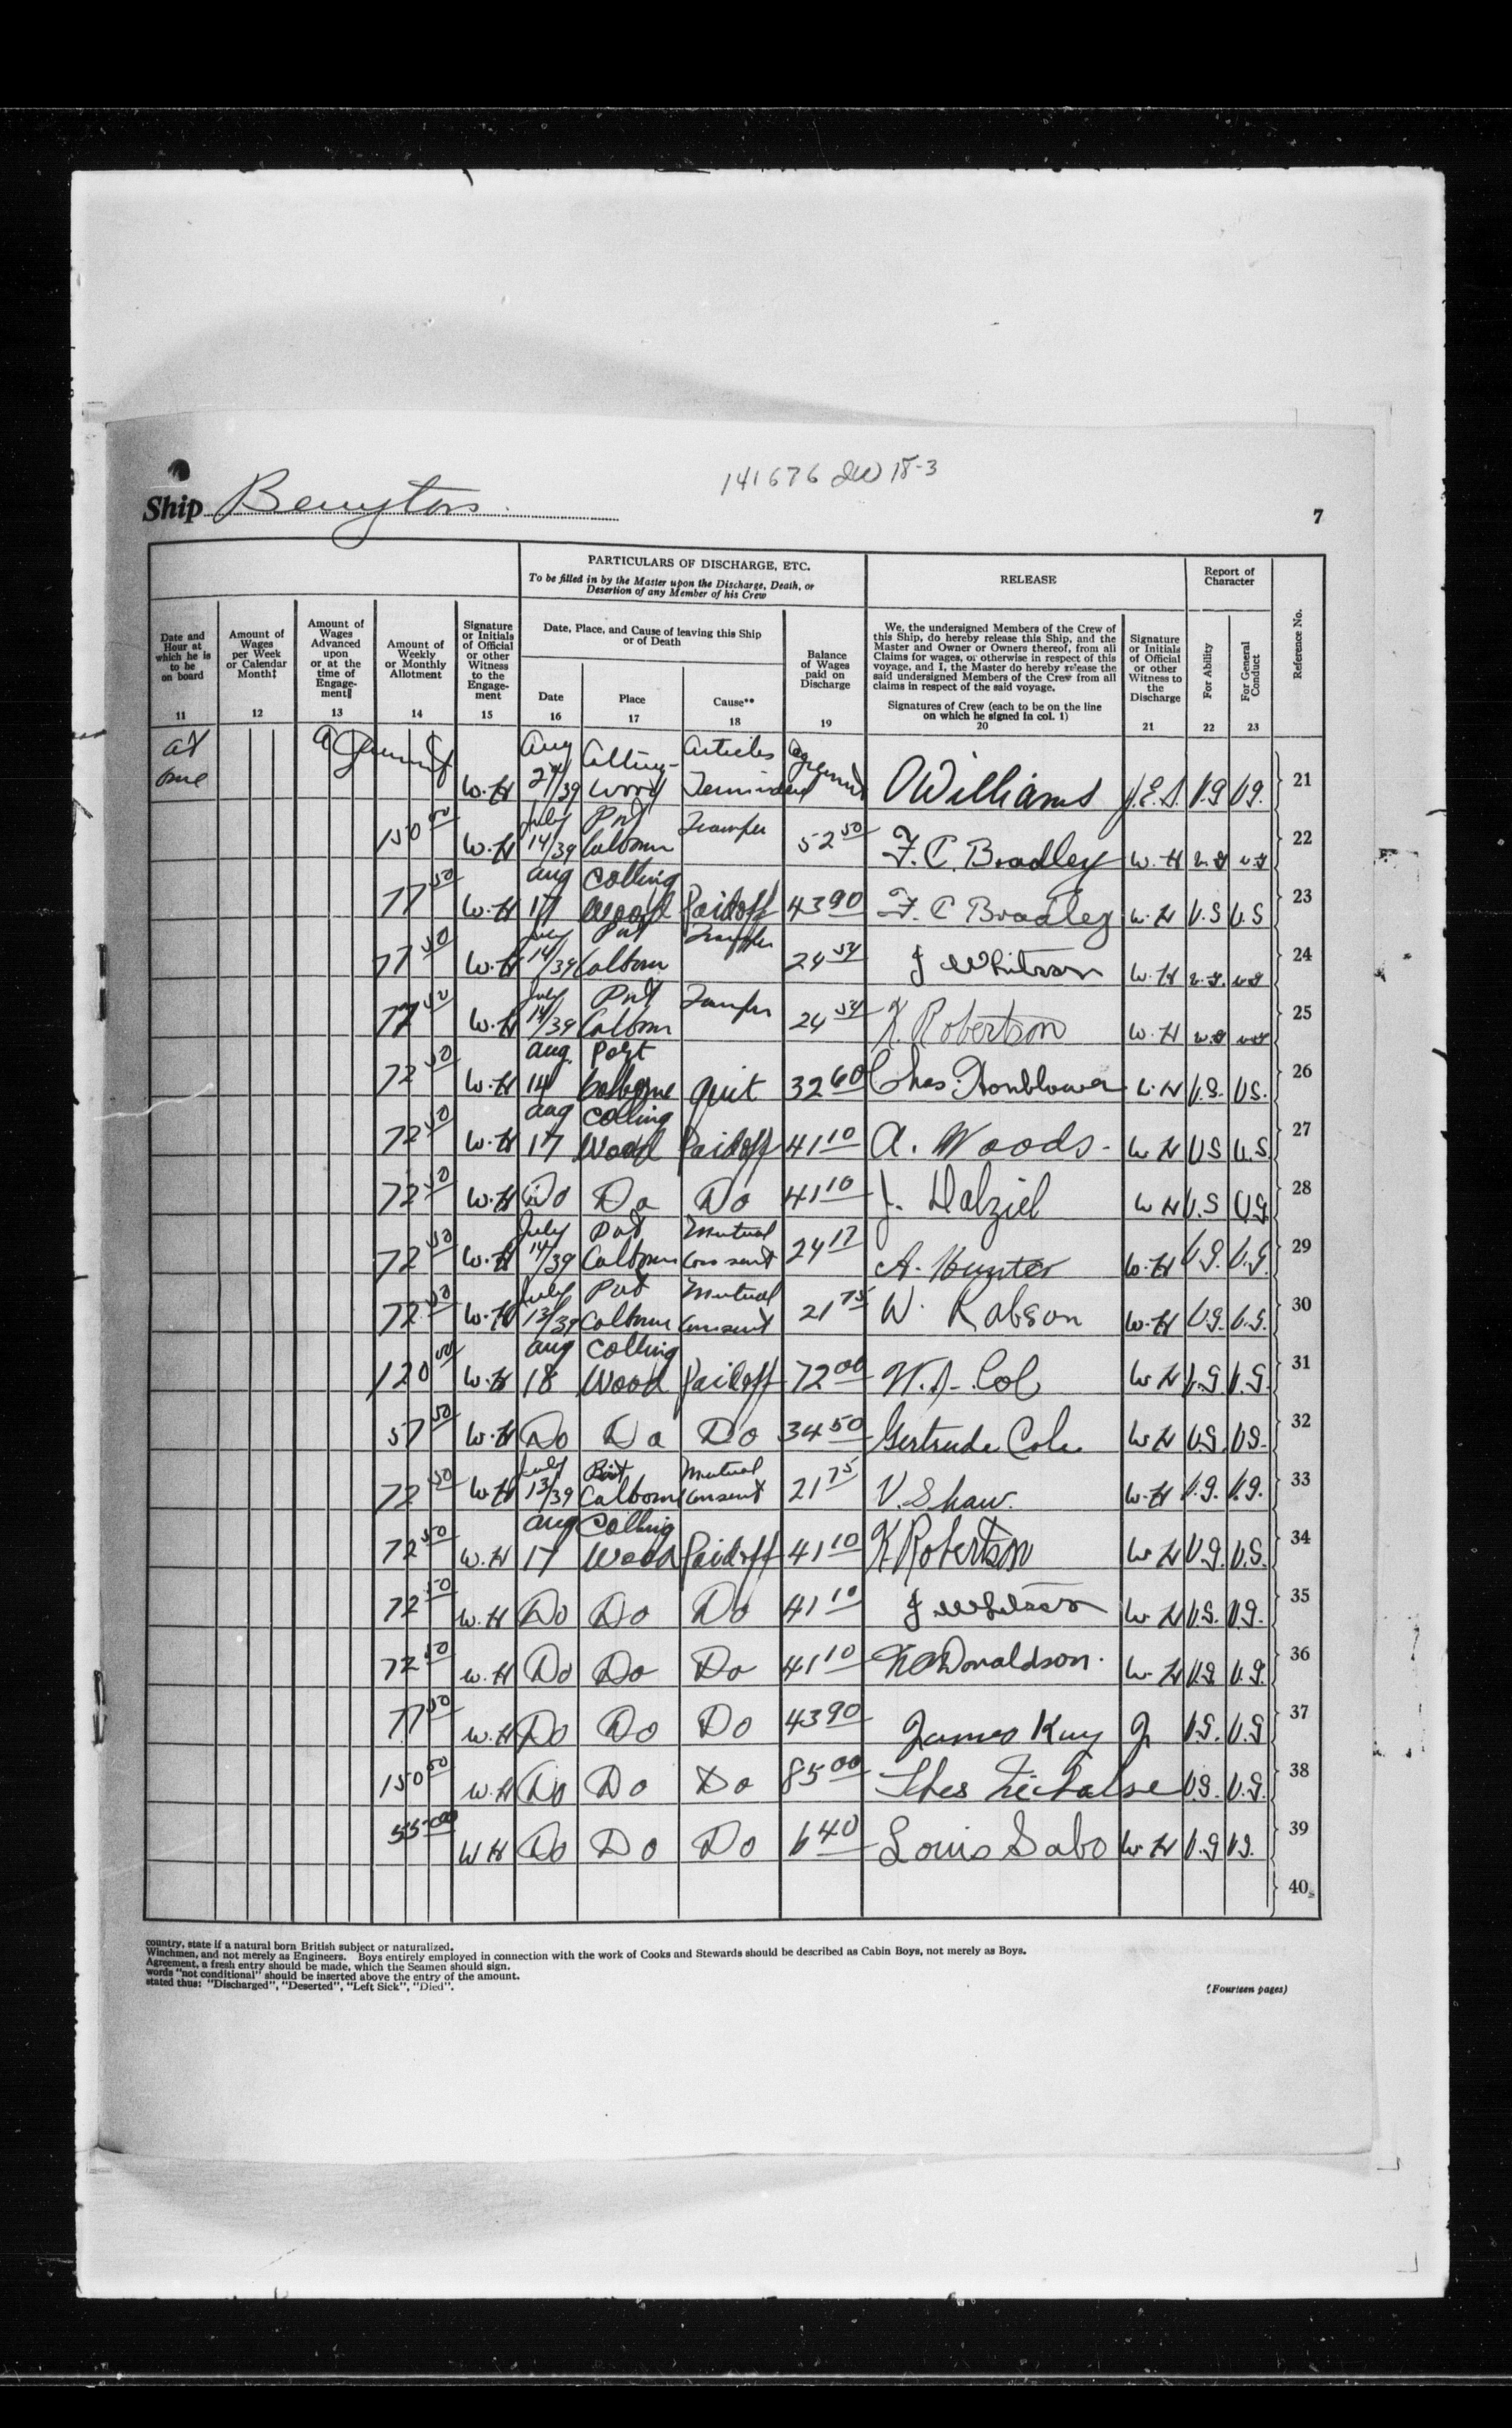 141676
Ship
7
PARTICULARS OF DISCHARGE, ETC.
To be filled in by the Master upon the Discharge, Death, or Desertion of any Member of his Crew
RELEASE
Report of Character
Date and Hour at which he is to be on board
11
Amount of Wages per Week or Calendar Month‡
12
Amount of Wages Advanced upon or at the time of Engagement§
13
Amount of Weekly or Monthly Allotment
14
Signature or Initials of Official or other Witness to the Engagement
15
Date, Place, and Cause of leaving this Ship or of Death
Date
16
Place
17
Cause**
18
Balance of Wages paid on Discharge
19
We, the undersigned Members of the Crew of this Ship, do hereby release this Ship, and the Master and Owner or Owners thereof, from all Claims for wages, or otherwise in respect of this voyage, and I, the Master do hereby release the said undersigned Members of the Crew from all claims in respect of the said voyage.
Signatures of Crew (each to be on the line on which he signed in col. 1)
20
Signature or Initials of Official or other Witness to the Discharge
21
For Ability
22
For General Conduct
23
Reference No.
at once W.H Aug /39 Articles Williams J.E.S. V.G V.G. 21
150 00 W.H July 14/39 Port Colborn Transfer 52 50 F. C. Bradley W.H v.g v.g 22
77 50 W.H aug 17 Colling Wood Paid off 43 90 F. C Bradley W.H V.G V.G 23
77 50 W.H July 14/39 Port Colborn Transfer 24 54 J Whitson W.H v.g. v.g 24
77 50 W.H July 14/39 Port Colborn Transfer 24 54 K. Robertson W.H v.g v.g 25
72 50 W.H aug. 14 Port Colborne quit 32 60 Chas. Hornblower W.H V.G. V.G. 26
72 50 W.H aug 17 Colling Wood Paid off 41 10 A. Woods W.H V.G V.G 27
72 50 W.H Do Do Do 41 10 J. Dalziel W H V.G V.G 28
72 50 W.H July 14/39 Port Colborn Mutual Consent 24 17 A. Hunter W.H V.G. V.G. 29
72 50 W.H July 13/39 Port Colborn Mutual Consent 21 75 W. Robson W.H V.G. V.G. 30
120 00 W.H aug 18 Colling Wood Paid off 72 00 W.H V.G V.G. 31
57 50 W.H Do Do Do 34 50 Gertrude Cole W H V.G. V.G. 32
72 50 W.H July 13/39 Port Colborn Mutual Consent 21 75 V. Shaw. W.H V.G. V.G. 33
72 50 W.H aug 17 Colling Wood Paid off 41 10 K. Robertson W H V.G. V.G. 34
72 50 W.H Do Do Do 41 10 J Whitson W.H V.G. V.G. 35
72 50 W.H Do Do Do 41 10 Donaldson. W.H V.G V.G. 36
77 50 W.H Do Do Do 43 90 James Kay V.G. V.G 37
150 00 W.H Do Do Do 85 00 V.G. V.G. 38
55 00 W H Do Do Do 6 40 Louis Sabo W.H V.G V.G. 39
40
country, state if a natural born British subject or naturalized.
Winchmen, and not merely as Engineers. Boys entirely employed in connection with the work of Cooks and Stewards should be described as Cabin Boys, not merely as Boys.
Agreement, a fresh entry should be made, which the Seamen should sign.
words "not conditional" should be inserted above the entry of the amount.
stated thus: "Discharged", "Deserted", "Left Sick", "Died".
(Fourteen pages)